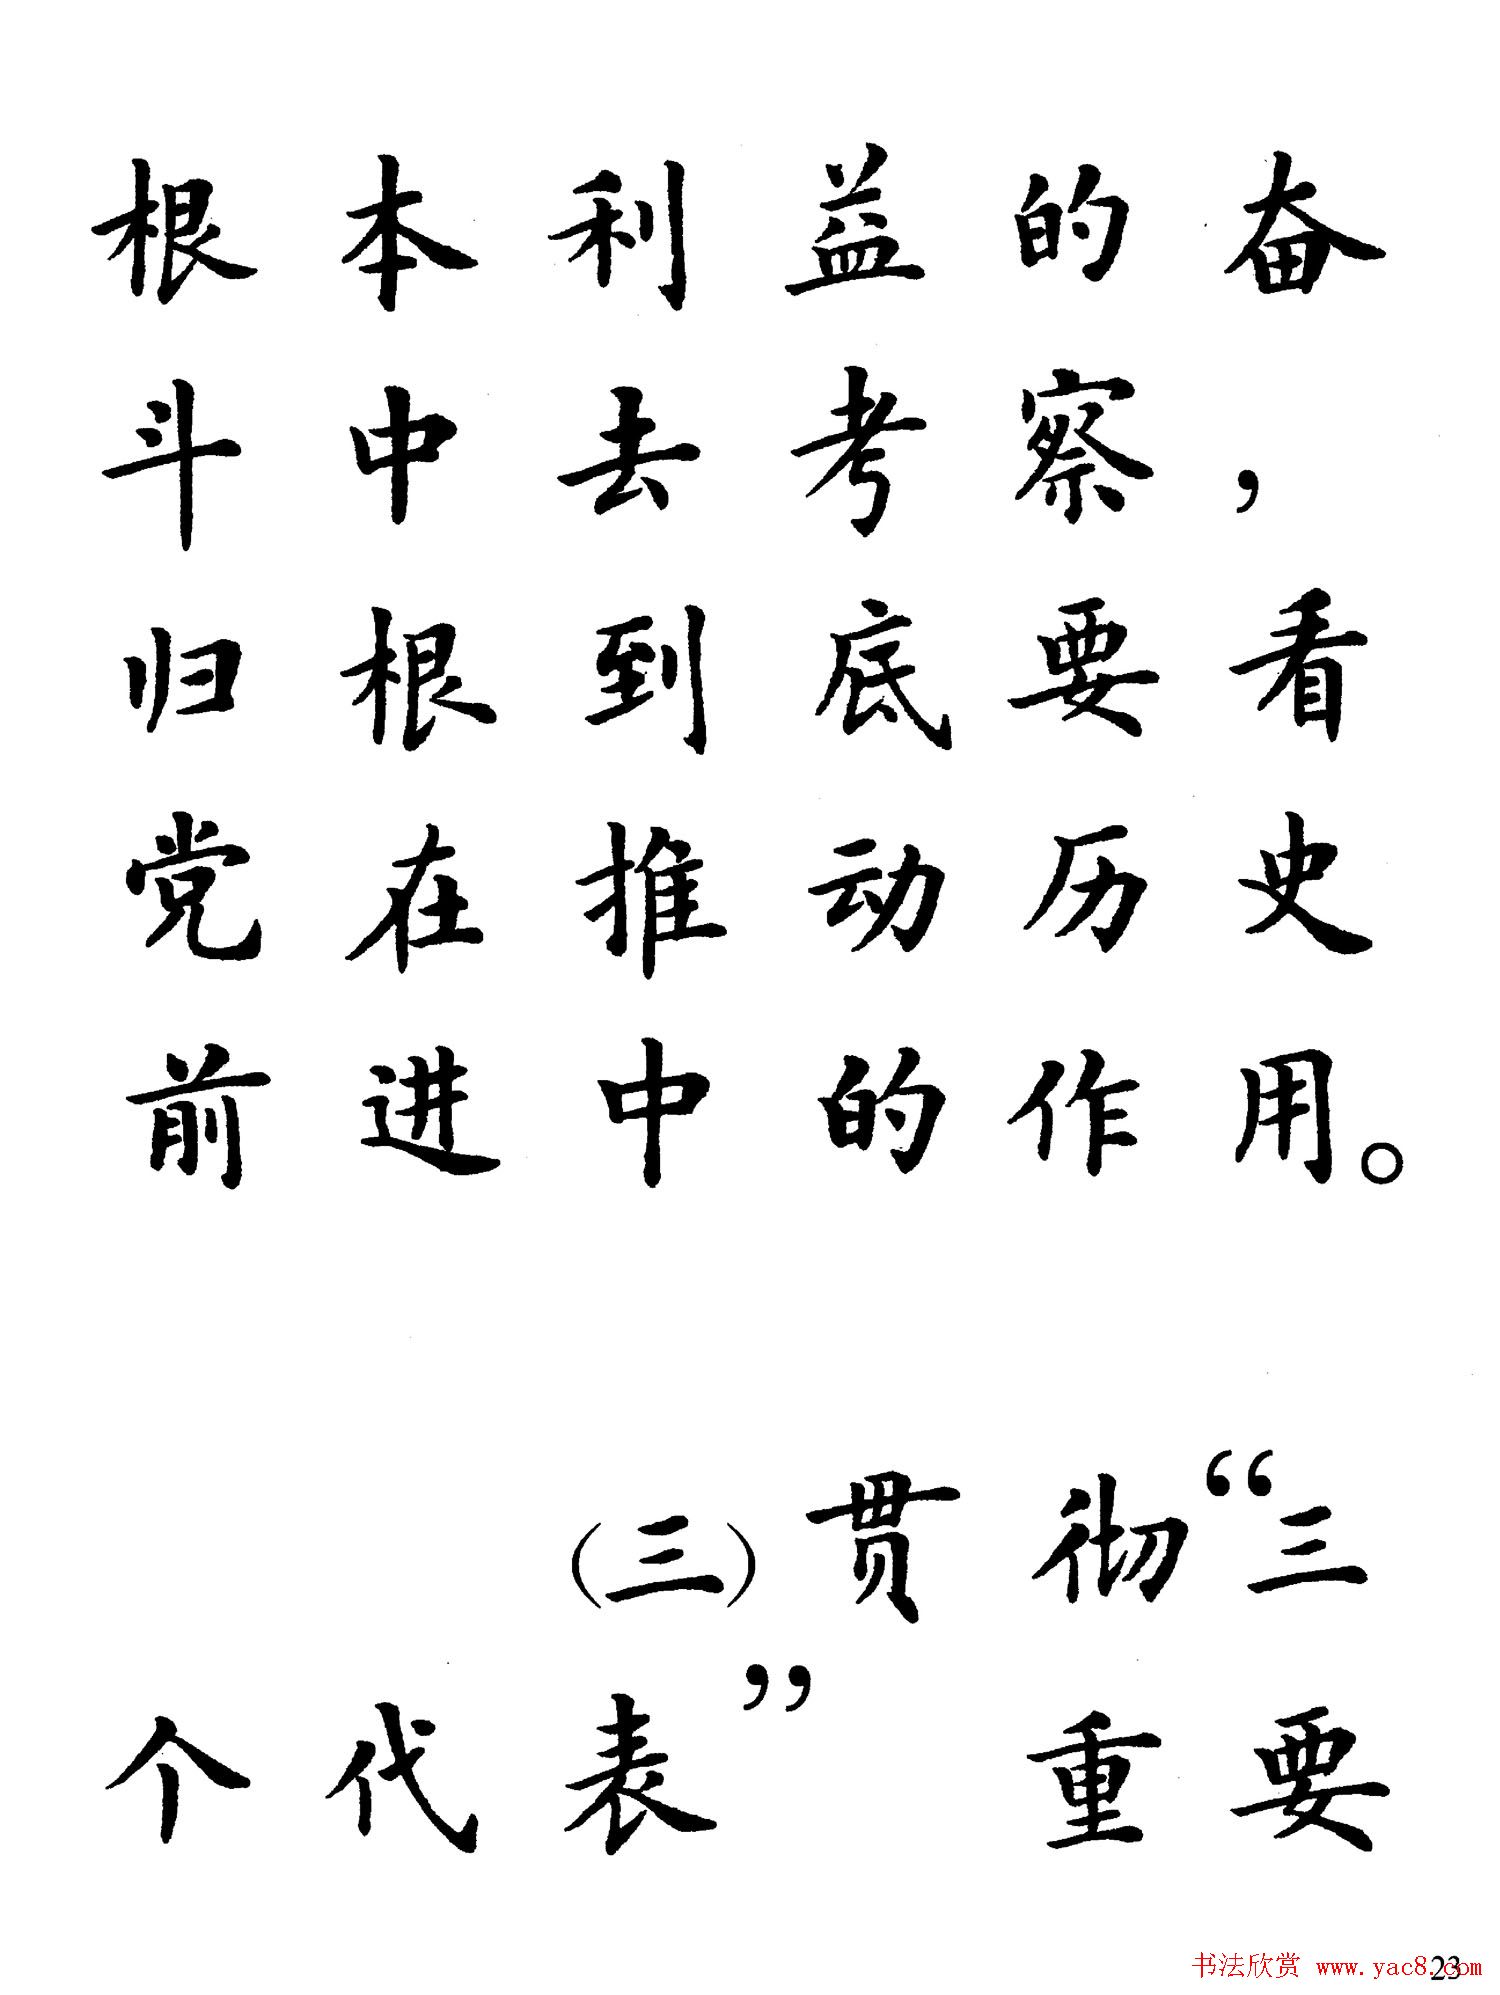 根本利益的奋
斗中去考察，
归根到底要看
党在推动历史
前进中的作用。
(三)贯彻“三
个代表”重要
23
书法欣赏 www.yac8.com